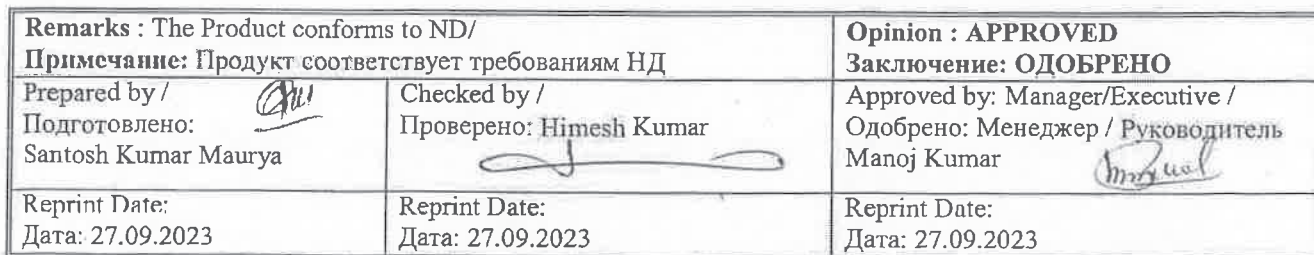 Remarks : The Product conforms to ND/
Примечание: Продукт соответствует требованиям НД
Opinion : APPROVED
Заключение: ОДОБРЕНО
Prepared by /
Подготовлено:
Santosh Kumar Maurya
Checked by /
Проверено: Himesh Kumar
Approved by: Manager/Executive /
Одобрено: Менеджер / Руководитель
Manoj Kumar
Reprint Date:
Дата: 27.09.2023
Reprint Date:
Дата: 27.09.2023
Reprint Date:
Дата: 27.09.2023